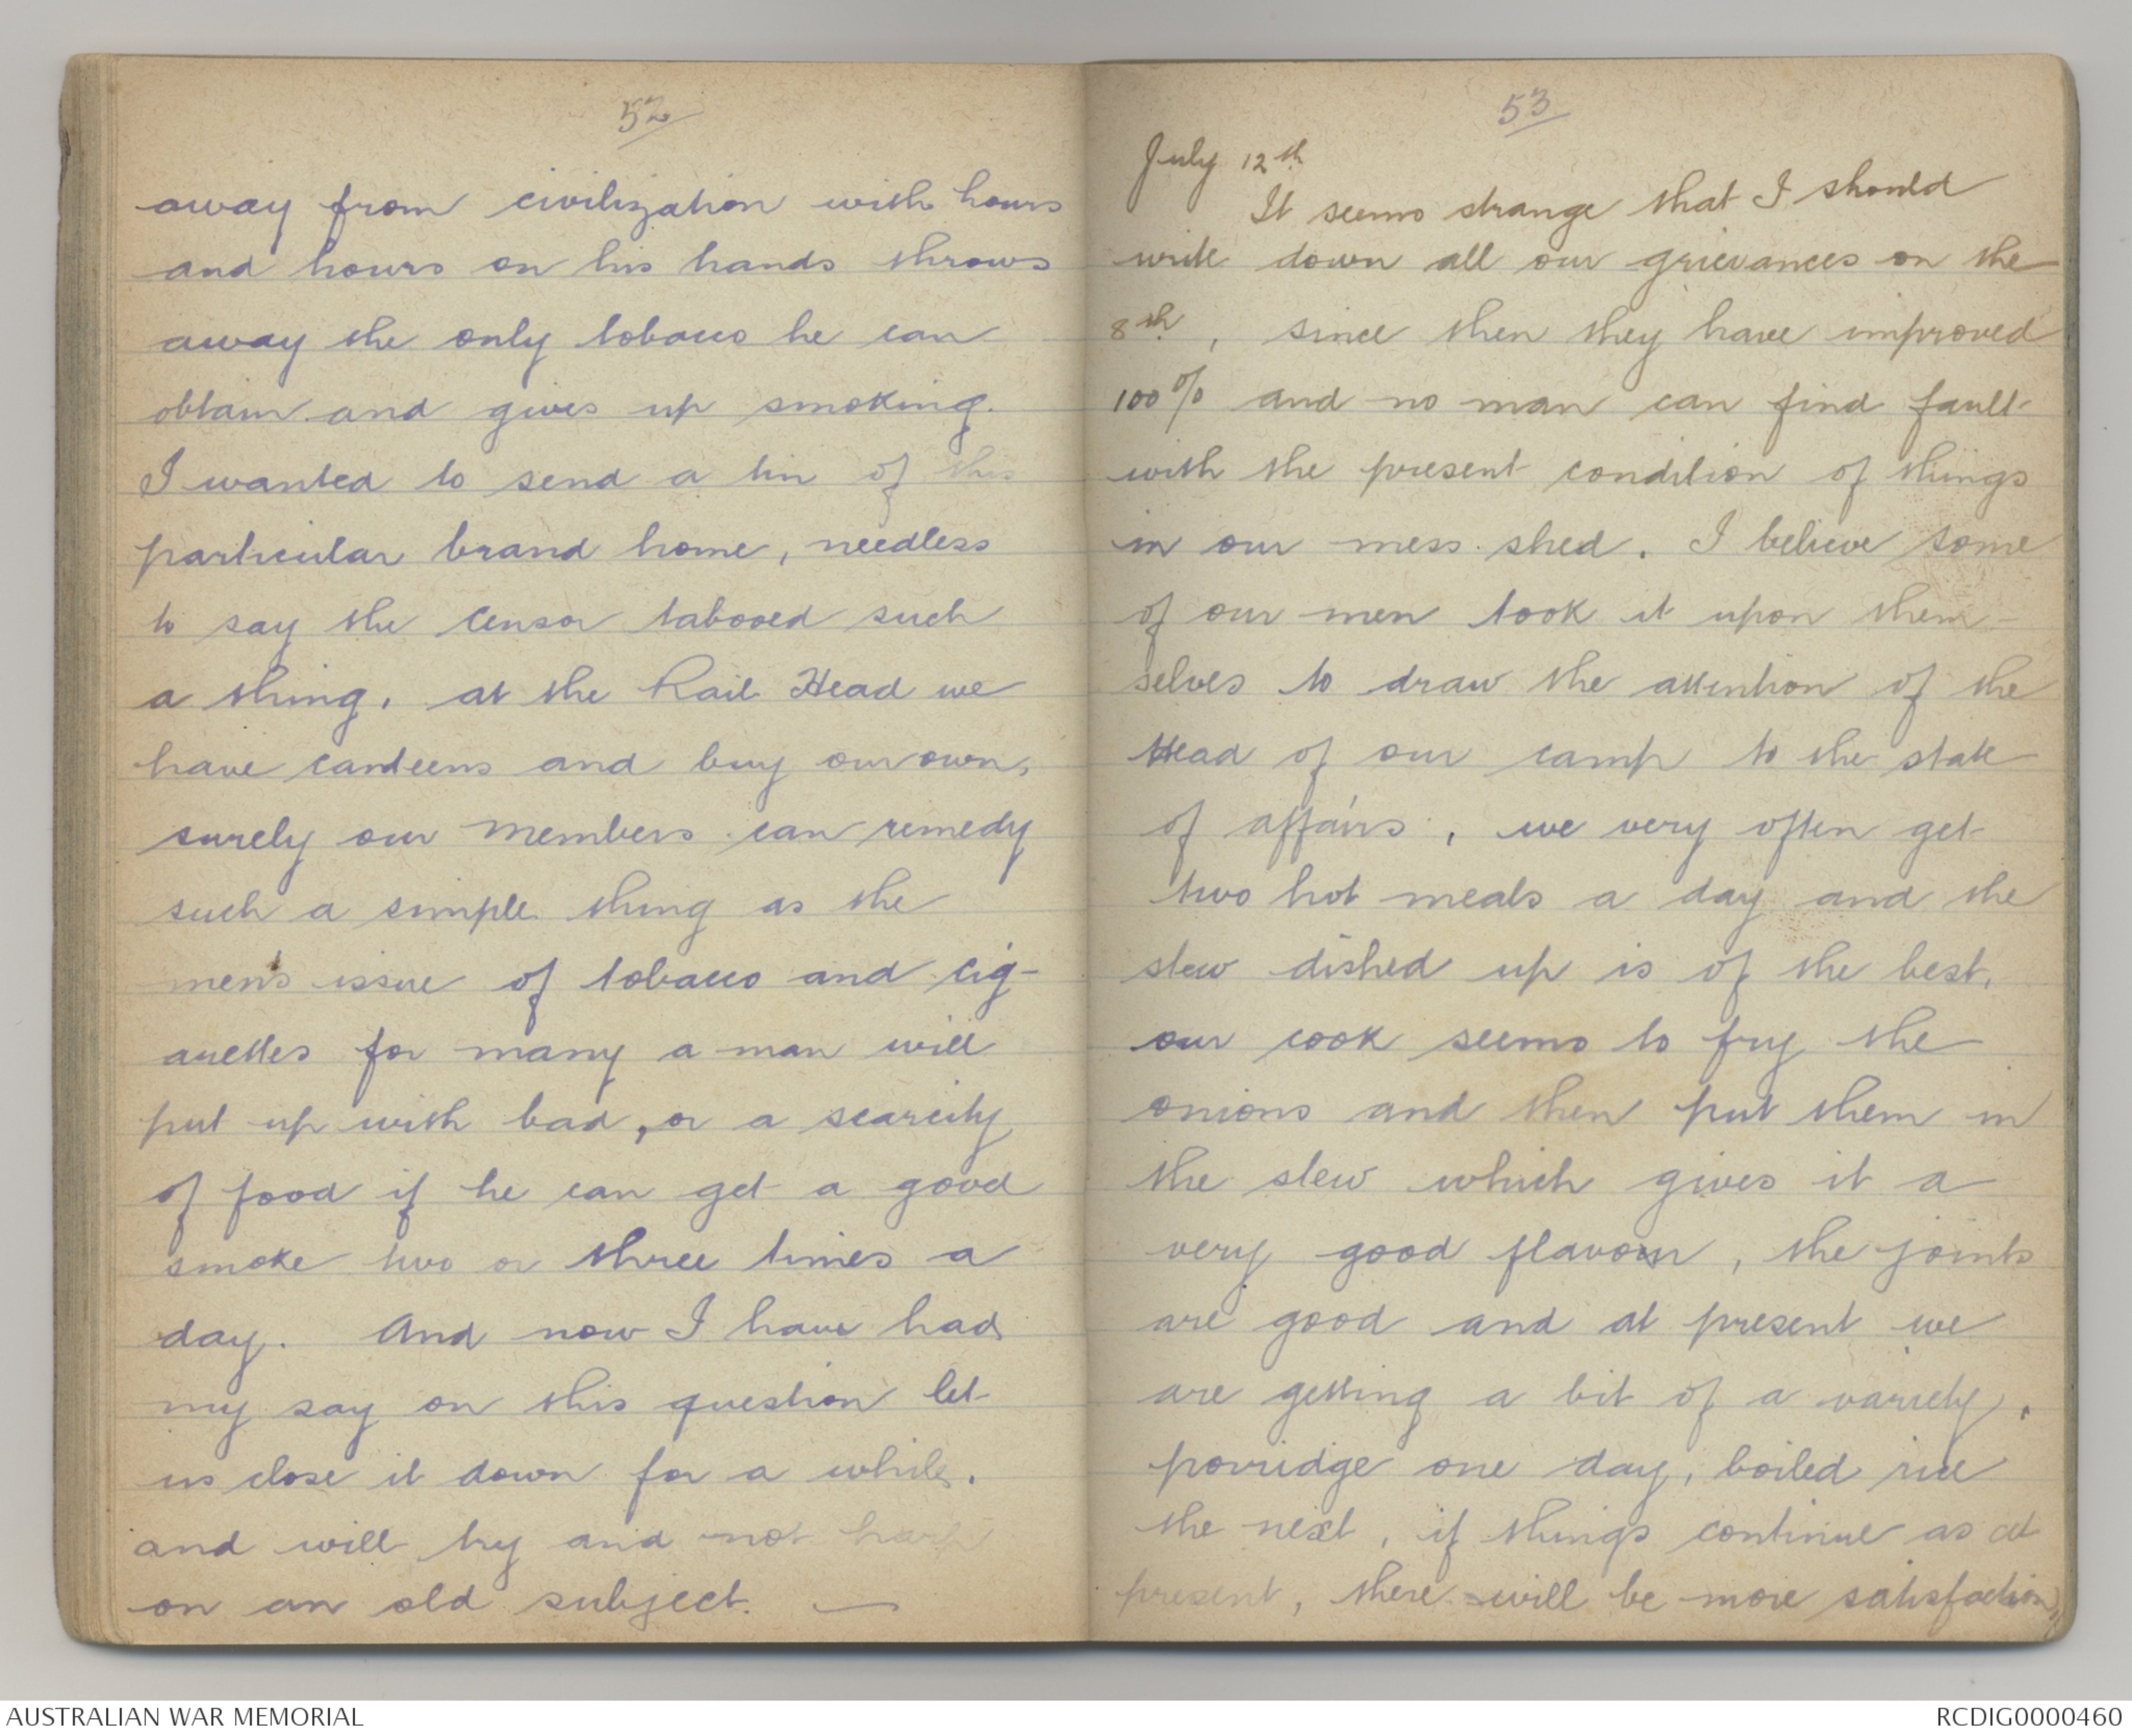 52
away from civilization with hours
and hours on his hands throws
away the only tobacco he can
obtain and gives up smoking.
I wanted to send a tin of this
particular brand home, needless
to say the censor tabooed such
a thing, at the Rail Head we
have canteens and buy our own,
surely our members can remedy
such a simple thing as the
men's issue of tobacco and cig-
arettes for many a man will
put up with bad, or a scarcity
of food if he can get a good
smoke two or three times a
day. And now I have had
my say on this question let
us close it down for a while.
and will try and not harp
on an old subject. —
53
July 12th
It seems strange that I should
write down all our grievances on the
8th, since then they have improved
100% and no man can find fault
with the present condition of things
in our mess shed. I believe some
of our men took it upon them-
selves to draw the attention of the
Head of our camp to the state
of affairs, we very often get
two hot meals a day and the
stew dished up is of the best,
our cook seems to fry the
onions and then put them in
the stew which gives it a
very good flavour, the joints
are good and at present we
are getting a bit of a variety,
porridge one day, boiled rice
the next, if things continue as at
present, there will be more satisfaction
AUSTRALIAN WAR MEMORIAL
RCDIG0000460